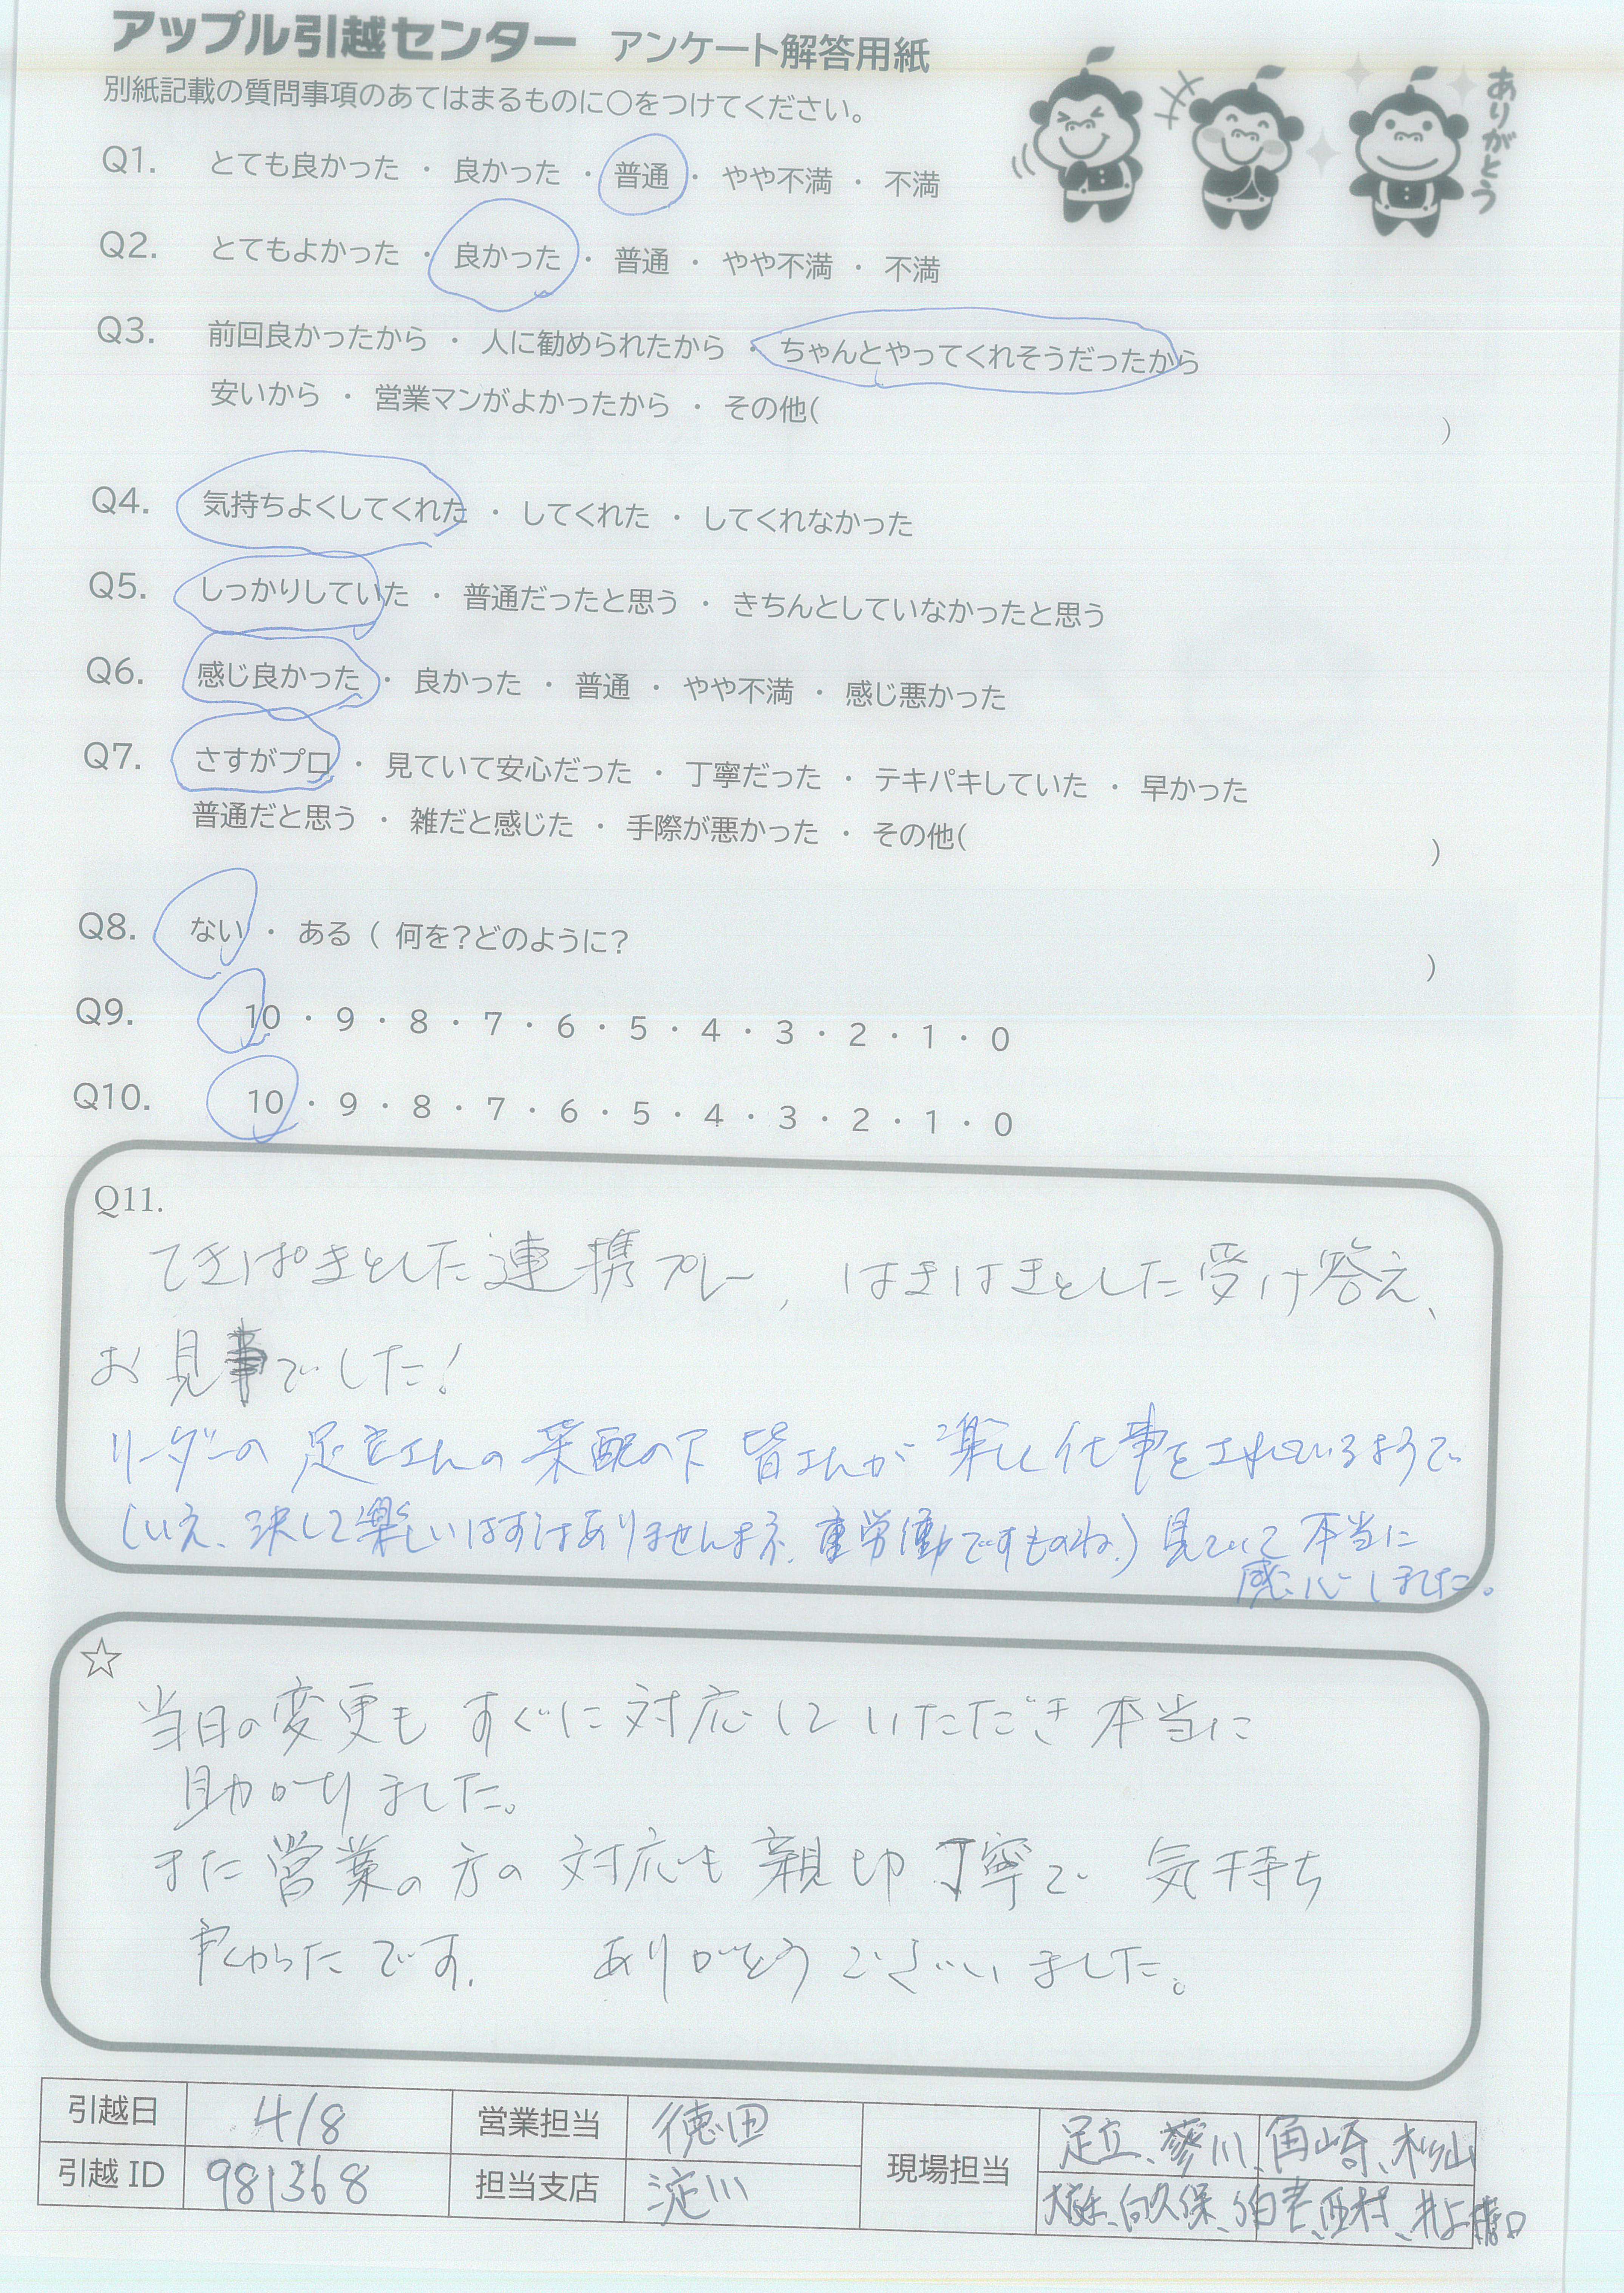 アップル引越センター アンケート解答用紙
別紙記載の質問事項のあてはまるものに○をつけてください。
ありがとう
Q1. とても良かった ・ 良かった ・ 普通 ・ やや不満 ・ 不満
Q2. とてもよかった ・ 良かった ・ 普通 ・ やや不満 ・ 不満
Q3. 前回良かったから ・ 人に勧められたから ・ ちゃんとやってくれそうだったから
安いから ・ 営業マンがよかったから ・ その他( )
Q4. 気持ちよくしてくれた ・ してくれた ・ してくれなかった
Q5. しっかりしていた ・ 普通だったと思う ・ きちんとしていなかったと思う
Q6. 感じ良かった ・ 良かった ・ 普通 ・ やや不満 ・ 感じ悪かった
Q7. さすがプロ ・ 見ていて安心だった ・ 丁寧だった ・ テキパキしていた ・ 早かった
普通だと思う ・ 雑だと感じた ・ 手際が悪かった ・ その他( )
Q8. ない ・ ある ( 何を?どのように? )
Q9. 10 ・ 9 ・ 8 ・ 7 ・ 6 ・ 5 ・ 4 ・ 3 ・ 2 ・ 1 ・ 0
Q10. 10 ・ 9 ・ 8 ・ 7 ・ 6 ・ 5 ・ 4 ・ 3 ・ 2 ・ 1 ・ 0
Q11.
てきぱきとした連携プレー, はきはきとした受け答え、
お見事でした!
リーダーの足立さんの采配の下 皆さんが楽しく仕事をされているようで
(いえ、決して楽しいはずはありませんよネ、重労働ですものね。) 見ていて本当に
感心しました。
☆
当日の変更も すぐに対応していただき本当に
助かりました。
また営業の方の対応も親切丁寧で 気持ち
良かったです. ありがとうございました。
引越日 4/8 営業担当 徳田 現場担当 足立、蓼川、角崎、杉山
引越 ID 981368 担当支店 淀川 向久保、伯耆、西村、井上